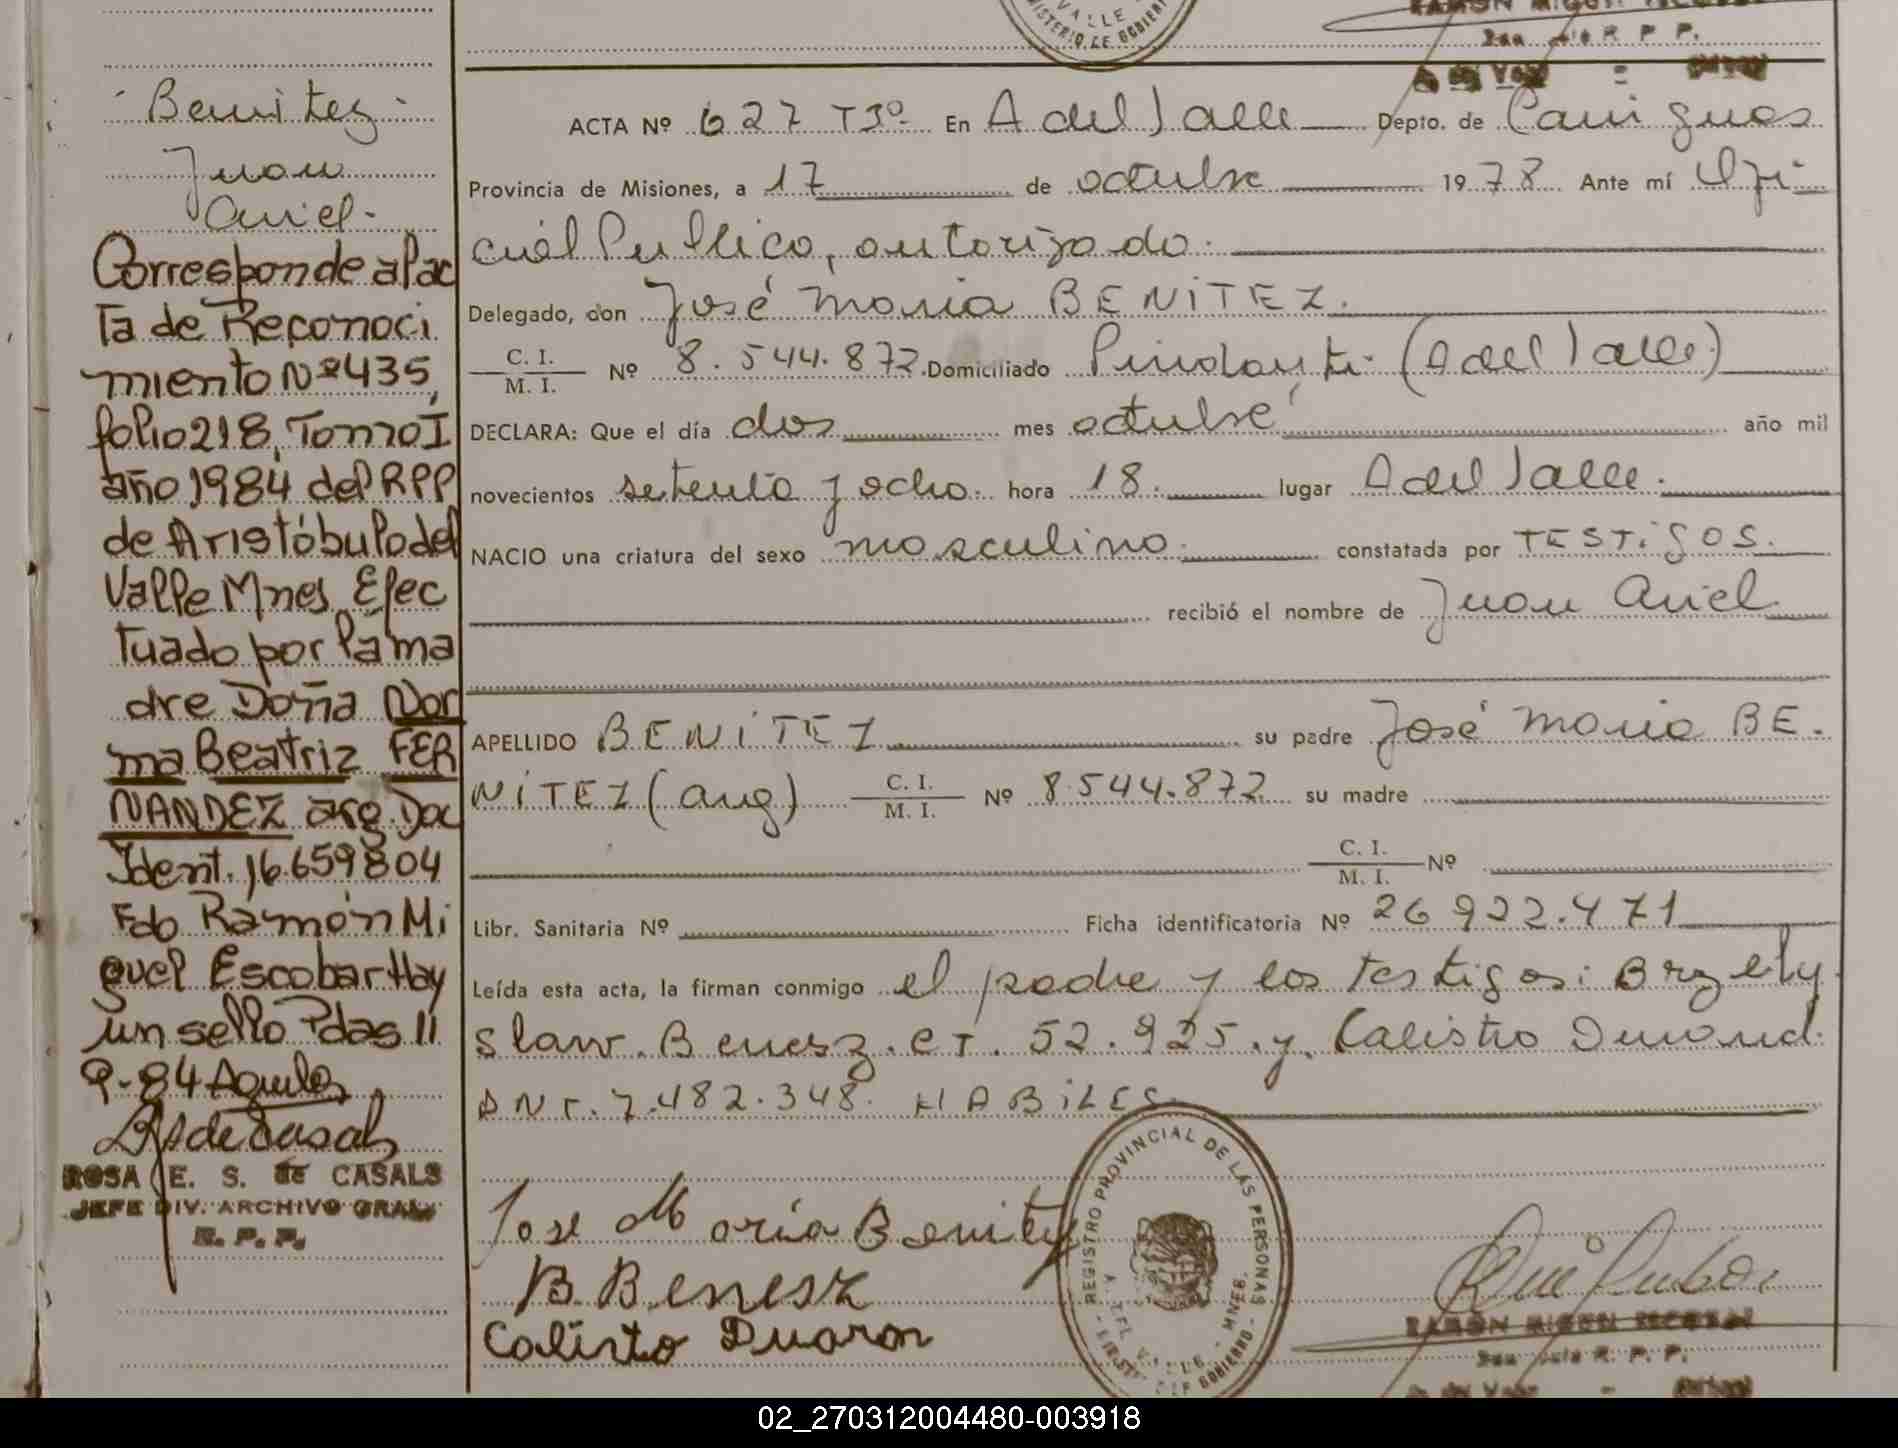 VALLE
MINISTERIO DE GOBIER
R P P.
Benitez
Juan
Ariel.-
Corresponde al ac
ta de Reconoci
miento Nº 435,
folio 218, Tomo I
año 1984 del RPP
de Aristóbulo del
Valle Mnes Efec
tuado por la ma
dre Doña Nor
ma Beatriz FER
NANDEZ arg. Doc
Ident. 16.659804
Fdo Ramón Mi
guel Escobar Hay
un sello Pdas 11
9-84
ROSA E. S. de CASALS
JEFE DIV. ARCHIVO GRAL.
R. P. P.
ACTA Nº 627 T3º En A del Valle Depto. de Cainguas
Provincia de Misiones, a 17 de octubre 1978 Ante mí Ofi-
cial Publico, autorizado.
Delegado, don José Maria BENITEZ.
C. I.
M. I.
Nº 8.544.872 Domiciliado Pindayti (A del Valle)
DECLARA: Que el día dos mes octubre año mil
novecientos setenta y ocho. hora 18. lugar A del Valle.
NACIO una criatura del sexo masculino. constatada por TESTIGOS.
recibió el nombre de Juan Ariel
APELLIDO BENITEZ su padre José Maria BE-
NITEZ (arg) C. I.
M. I.
Nº 8.544.872 su madre
C. I.
M. I.
Nº
Libr. Sanitaria Nº Ficha identificatoria Nº 26922.471
Leída esta acta, la firman conmigo el padre y los testigos: Brzely
slaw. Benesz. CI. 52.925. y. Calistro
DNI. 7.482.348. HABILES
Jose Maria Benitez
B. Benesz
Calisto
REGISTRO PROVINCIAL DE LAS PERSONAS
A. DEL VALLE - MNES.
MINISTERIO DE GOBIERNO
RAMON MIGUEL ESCOBAR
R. P. P.
02_270312004480-003918